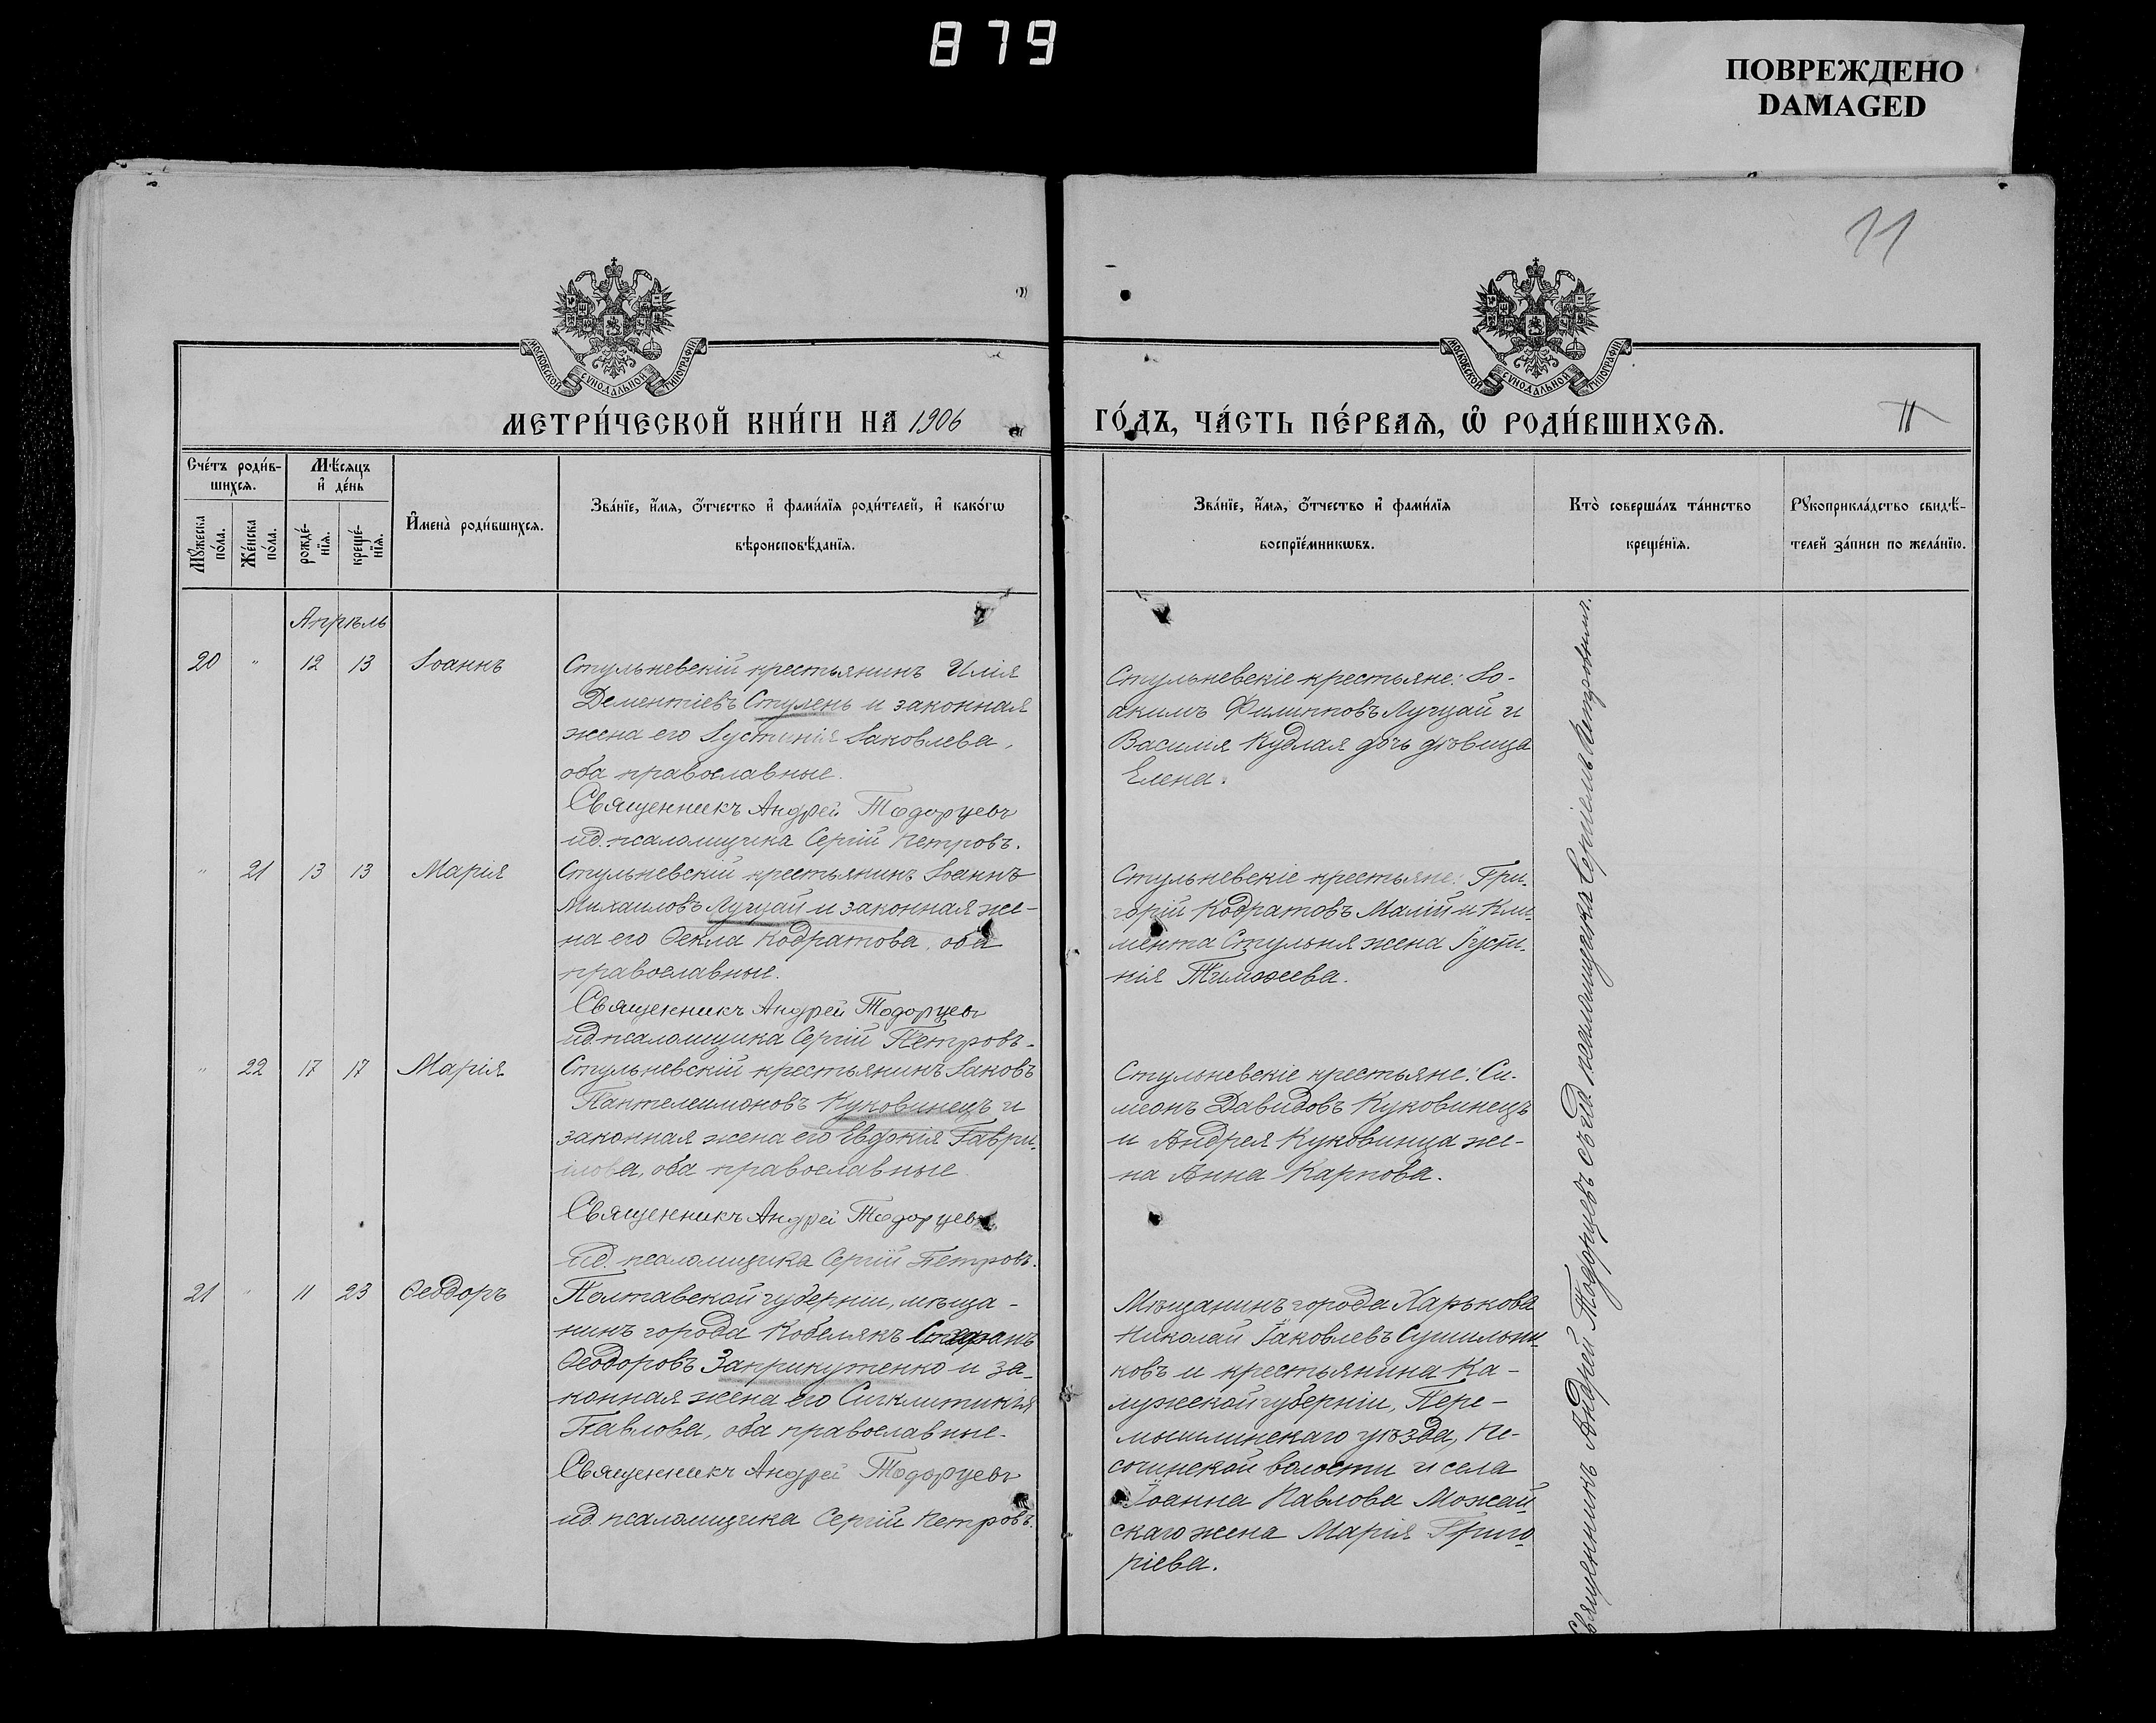 879
ПОВРЕЖДЕНО
DAMAGED
11
МОСКОВСКОЙ СѴНОДАЛЬНОЙ ТИПОГРАФІИ
МОСКОВСКОЙ СѴНОДАЛЬНОЙ ТИПОГРАФІИ
МЕТРИ́ЧЕСКОЙ КНИ́ГИ НА 1906
ГО́ДЪ, ЧА́СТЬ ПЕ́РВАѦ, Ѽ РОДИ́ВШИХСѦ.
11
Сче́тъ роди́в-
шихсѧ.
Мѣ́сяцъ
и҆ де́нь
Мꙋ́жеска
по́ла.
Же́нска
по́ла.
рожде́-
нїѧ.
креще́-
нїѧ.
И҆мена̀ роди́вшихсѧ.
Зва́нїе, и҆́мѧ, ѻ҆́тчество и҆ фами́лїѧ роди́телей, и҆ како́гѡ
вѣроисповѣ́данїѧ.
Зва́нїе, и҆́мѧ, ѻ҆́тчество и҆ фами́лїѧ
воспрїе́мникѡвъ.
Кто̀ соверша́лъ та́инство
креще́нїѧ.
Рꙋкоприкла́дство свидѣ́-
телей за́писи по жела́нїю.
Апрѣль
20 " 12 13 Іоаннъ
Стульневскій крестьянинъ Илія
Дементіевъ Стулень и законная
жена его Іустинія Іаковлева,
оба православные.
Священникъ Андрей Тодорцевъ
ид. псаломщика Сергій Петровъ.
Стульневскіе крестьяне: Іо-
акимъ Филипповъ Лугцай и
Василія Кудлая дочь дѣвица
Елена.
" 21 13 13 Марія
Стульневскій крестьянинъ Іоаннъ
Михаиловъ Лугцай и законная же-
на его Ѳекла Кодратова, оба
православные.
Священникъ Андрей Тодорцевъ
ид. псаломщика Сергій Петровъ.
Стульневскіе крестьяне: Гри-
горій Кодратовъ Малій и Кли-
мента Стульня жена Іусти-
нія Тимоѳеева.
" 22 17 17 Марія
Стульневскій крестьянинъ Іаковъ
Пантелеимоновъ Куковинецъ и
законная жена его Евдокія Гаври-
илова, оба православные.
Священникъ Андрей Тодорцевъ
Ид. псаломщика Сергій Петровъ.
Стульневскіе крестьяне: Си-
меонъ Давидовъ Куковинецъ
и Андрея Куковинца же-
на Анна Карпова.
21 " 11 23 Ѳеодоръ
Полтавской губерніи, мѣща-
нинъ города Кобелякъ
Ѳеодоровъ Заприкутенко и за-
конная жена его Сигклитикія
Павлова, оба православные.
Священникъ Андрей Тодорцевъ
ид. псаломщика Сергій Петровъ.
Мѣщанинъ города Харькова
Николай Іаковлевъ Сушильни-
ковъ и крестьянина Ка-
лужской губерніи, Пере-
мышлинскаго уѣзда, Пе-
сочинской волости и села
Іоанна Павлова Можай-
скаго жена Марія Григо-
ріева.
Священникъ Андрей Тодорцевъ съ ид. псаломщика Сергіемъ Петровымъ.